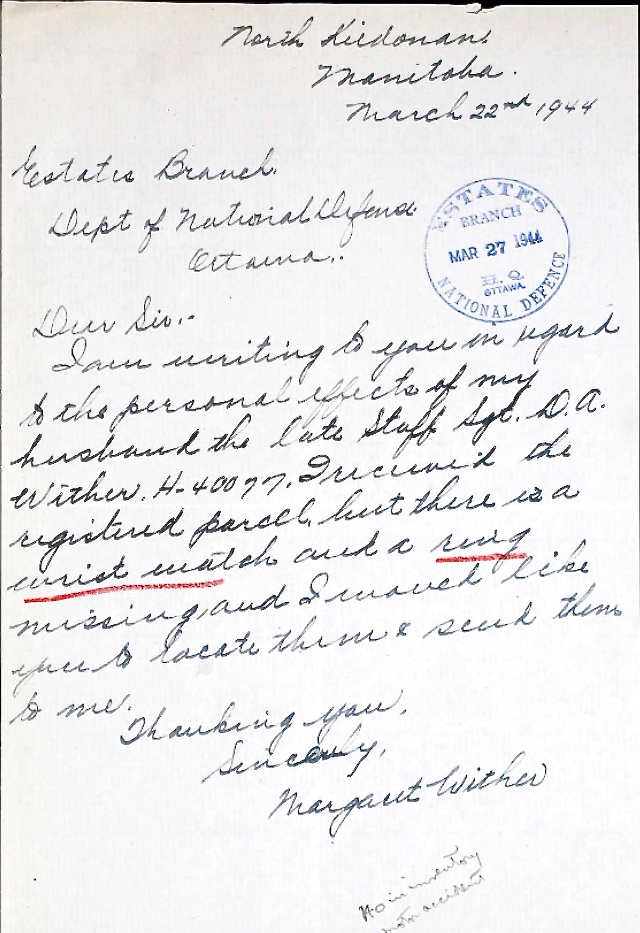 North Kildonan.
Manitoba.
March 22nd 1944
Estates Branch.
Dept of National Defense
Ottawa..
ESTATES
BRANCH
MAR 27 1944
H.Q.
OTTAWA.
NATIONAL DEFENCE
Dear Sir.-
I am writing to you in regard
to the personal effects of my
husband the late Staff Sgt. D.A.
Wither. H-40077. I received the
registered parcel, but there is a
wrist watch and a ring
missing, and I would like
you to locate them & send them
to me.
Thanking you.
Sincerely,
Margaret Wither
No in inventory
motor accident